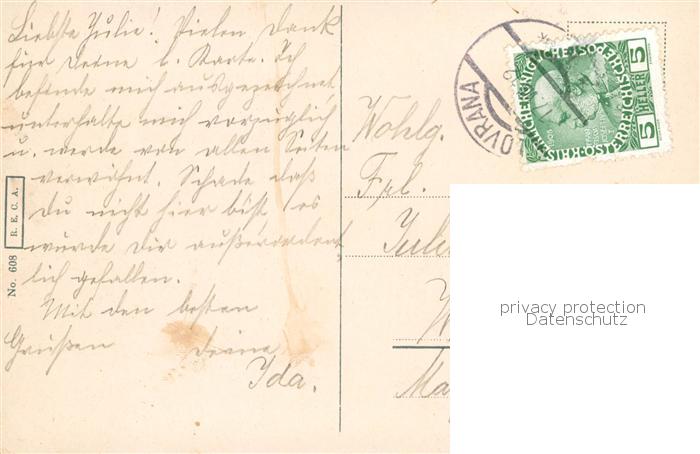 Liebste Julie! Vielen Dank
für Deine l. Karte. Ich
befinde mich ausgezeichnet,
unterhalte mich vorzüglich
u. werde von allen Seiten
verwöhnt. Schade daß
Du nicht hier bist, es
würde Dir außerordent
lich gefallen.
Mit den besten
Grüßen Deine
Ida.
No. 608 R. E. C. A.
LOVRANA
5 5
HELLER
Wohlg.
Frl.
privacy protection
Datenschutz